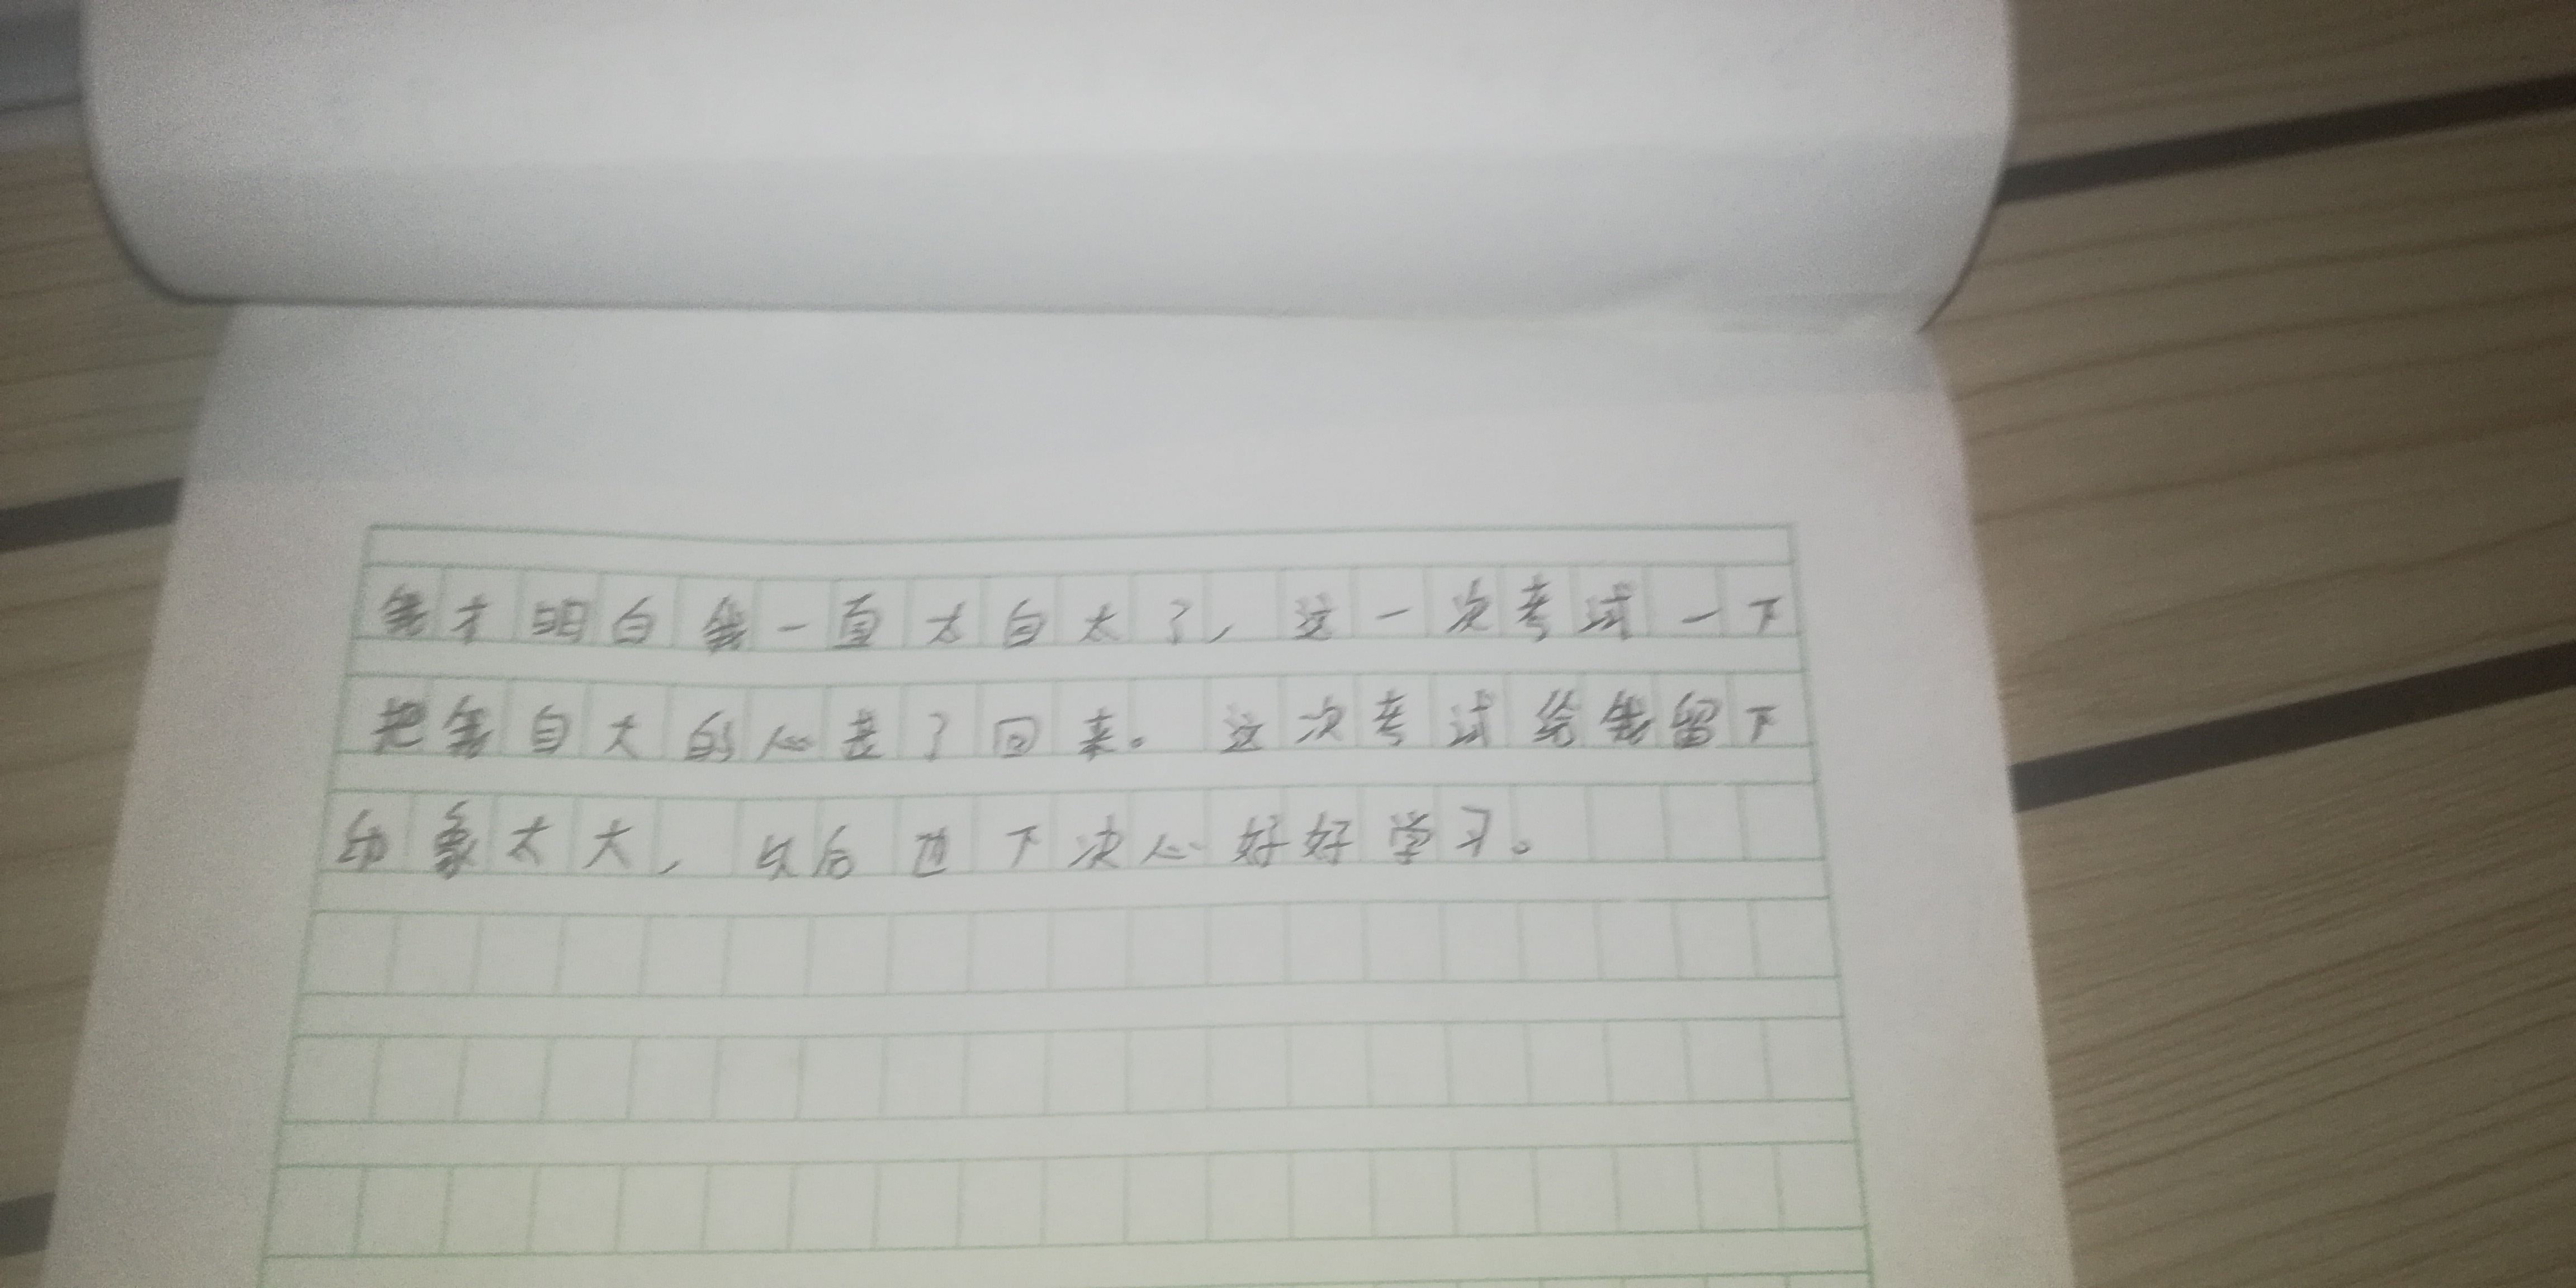 我才明白我一直太自大了，这一次考试一下
把我自大的心丢了回来。这次考试给我留下
印象太大，以后也下决心好好学习。